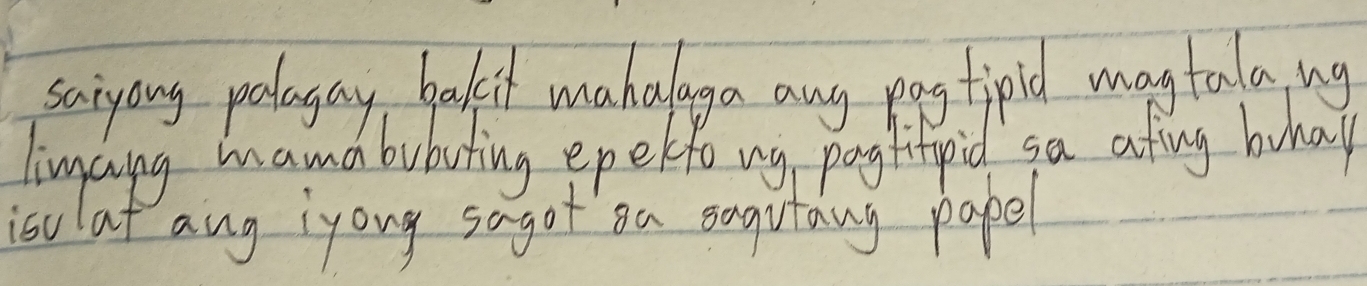 saiyong palagay, bakit mahalaga ang pagtipid magtala ng
limang mamabubuting epekto ng pagtitipid sa ating buhay
isulat ang iyong sagot sa sagutang papel